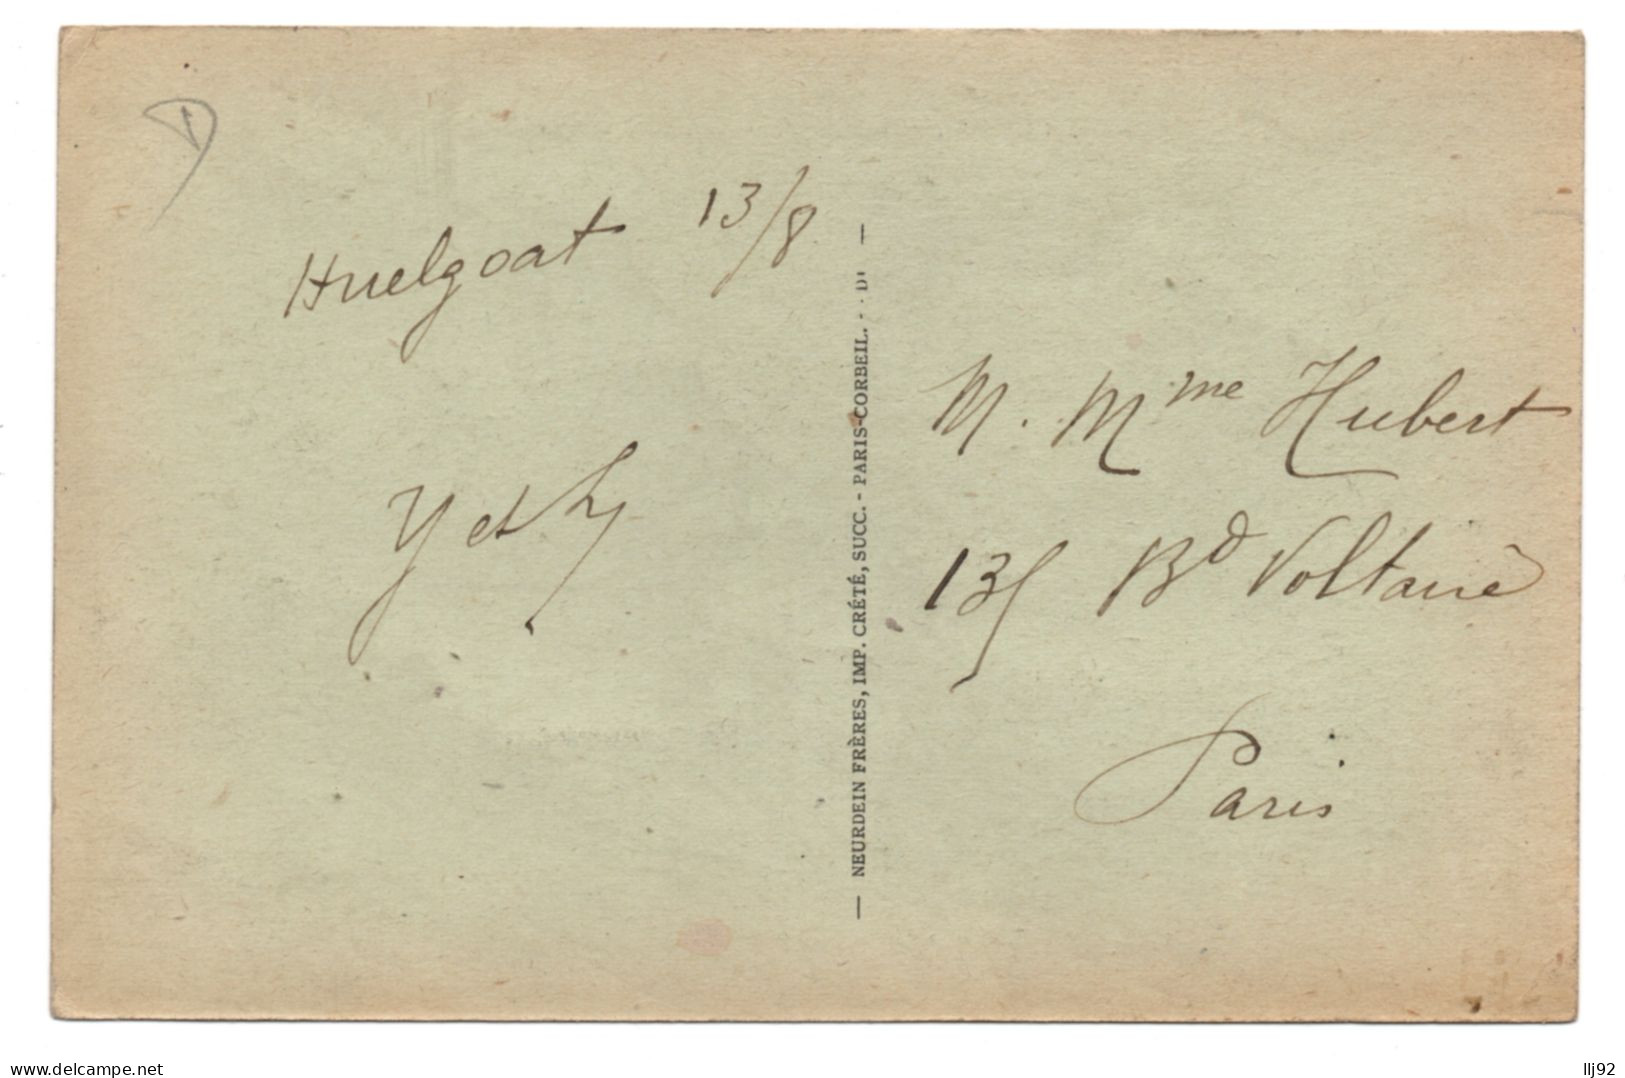 Huelgoat 13/8
Y et
NEURDEIN FRÈRES, IMP. CRÉTÉ, SUCC. - PARIS-CORBEIL. -
M. Mme Hubert
135 Bd Voltaire
Paris
www.delcampe.net
llj92